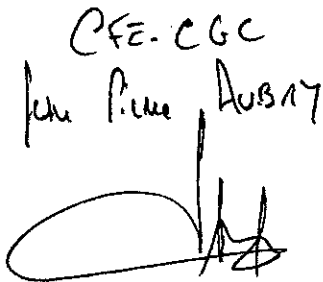 CFE-CGC
Jean Pierre AUBRY